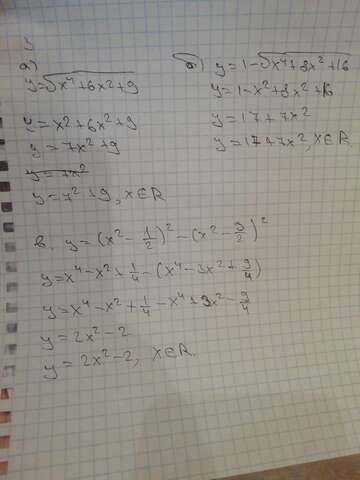 3
а)
y=√x⁴+6x²+9
y=x²+6x²+9
y=7x²+9
y=7x²
y=7²+9, x∈R
б) y=1-√x⁴+8x²+16
y=1-x²+8x²+16
y=17+7x²
y=17+7x², x∈R
в. y=(x²-1/2)²-(x²-3/2)²
y=x⁴-x²+1/4-(x⁴-3x²+9/4)
y=x⁴-x²+1/4-x⁴+3x²-9/4
y=2x²-2
y=2x²-2, x∈R.